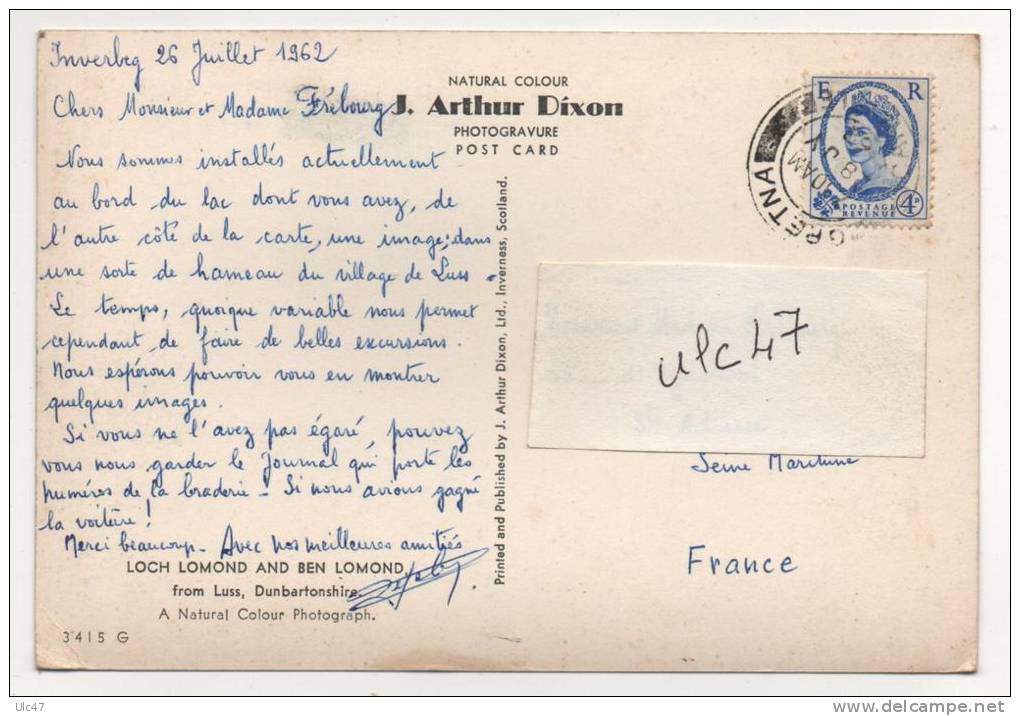 Inverbeg 26 Juillet 1962
Chers Monsieur et Madame Fribourg
Nous sommes installés actuellement
au bord du lac dont vous avez, de
l'autre côté de la carte, une image; dans
une sorte de hameau du village de Luss.
Le temps, quoique variable nous permet
cependant de faire de belles excursions.
Nous espérons pouvoir vous en montrer
quelques images.
Si vous ne l'avez pas égaré, pouvez
vous nous garder le Journal qui porte les
numéros de la braderie - Si nous avions gagné
la voiture!
Merci beaucoup - Avec nos meilleures amitiés
LOCH LOMOND AND BEN LOMOND
from Luss, Dunbartonshire.
A Natural Colour Photograph.
3415 G
NATURAL COLOUR
J. Arthur Dixon
PHOTOGRAVURE
POST CARD
Printed and Published by J. Arthur Dixon, Ltd., Inverness, Scotland.
E R
POSTAGE
REVENUE
4D
GRETNA
10 AM
8 JY
ulc47
Seine Maritime
France
Ulc47
delcampe.net